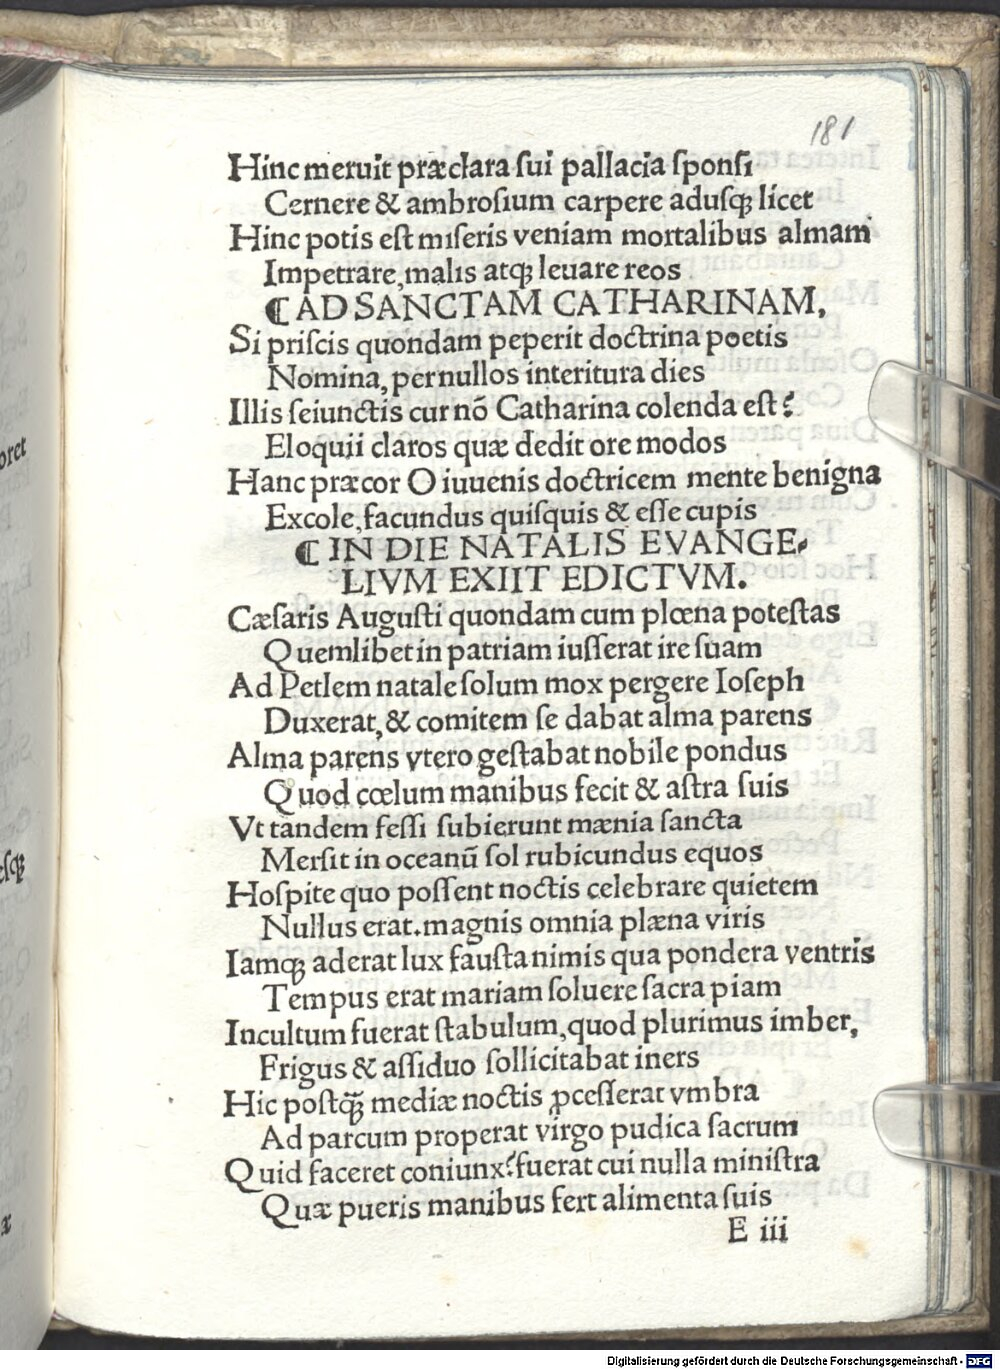 181
Hinc meruit præclara sui pallacia sponsi
Cernere & ambrosium carpere adusqꝫ licet
Hinc potis est miseris veniam mortalibus almam
Impetrare, malis atqꝫ leuare reos
¶ AD SANCTAM CATHARINAM,
Si priscis quondam peperit doctrina poetis
Nomina, per nullos interitura dies
Illis seiunctis cur nō Catharina colenda est?
Eloquii claros quæ dedit ore modos
Hanc præcor O iuuenis doctricem mente benigna
Excole, facundus quisquis & esse cupis
¶ IN DIE NATALIS EVANGE-
LIVM EXIIT EDICTVM.
Cæsaris Augusti quondam cum plœna potestas
Quemlibet in patriam iusserat ire suam
Ad Petlem natale solum mox pergere Ioseph
Duxerat, & comitem se dabat alma parens
Alma parens vtero gestabat nobile pondus
Quod cœlum manibus fecit & astra suis
Vt tandem fessi subierunt mænia sancta
Mersit in oceanū sol rubicundus equos
Hospite quo possent noctis celebrare quietem
Nullus erat. magnis omnia plæna viris
Iamqꝫ aderat lux fausta nimis qua pondera ventris
Tempus erat mariam soluere sacra piam
Incultum fuerat stabulum, quod plurimus imber,
Frigus & assiduo sollicitabat iners
Hic postq̄ꝫ mediæ noctis ꝓcesserat vmbra
Ad parcum properat virgo pudica sacrum
Quid faceret coniunx? fuerat cui nulla ministra
Quæ pueris manibus fert alimenta suis
E iii
oret
esqꝫ
æ
Digitalisierung gefördert durch die Deutsche Forschungsgemeinschaft - DFG